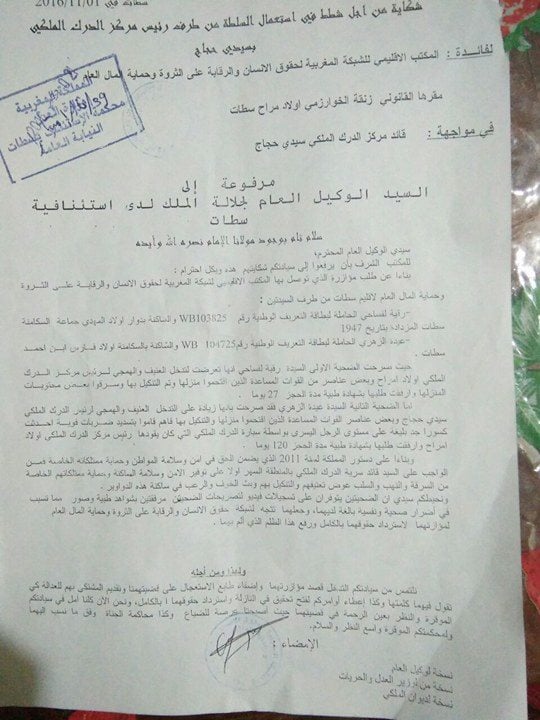 سطات في 2016/11/01
شكاية من اجل شطط في استعمال السلطة من طرف رئيس مركز الدرك الملكي
بسيدي حجاج
لفائدة : المكتب الاقليمي للشبكة المغربية لحقوق الانسان والرقابة على الثروة وحماية المال العام
مقرها القانوني زنقة الخوارزمي اولاد مراح سطات
في مواجهة : قائد مركز الدرك الملكي سيدي حجاج
المملكة المغربية
محكمة الاستئناف بسطات
النيابة العامة
مرفوعة إلى
السيد الوكيل العام لجلالة الملك لدى استئنافية
سطات
سلام تام بوجود مولانا الإمام نصره الله وأيده
سيدي الوكيل العام المحترم،
للمكتب الشرف بأن يرفعوا إلى سيادتكم شكايتهم هذه وبكل احترام :
بناءا عن طلب مؤازرة الذي توصل بها المكتب الاقليمي للشبكة المغربية لحقوق الانسان والرقابة على الثروة
وحماية المال العام لاقليم سطات من طرف السيدتين :
-رقية لفساحي الحاملة لبطاقة التعريف الوطنية رقم WB103825 والساكنة بدوار اولاد المهدي جماعة السكامنة
سطات المزدادة بتاريخ 1947
-عبدة الزهري الحاملة لبطاقة التعريف الوطنية رقم WB 104725 والساكنة بالسكامنة اولاد فارس ابن احمد
سطات .
حيث صرحت الضحية الاولى السيدة رقية لفساحي انها تعرضت لتدخل العنيف والهمجي لرئيس مركز الدرك
الملكي اولاد امراح وبعض عناصر من القوات المساعدة الذين اقتحموا منزلها وتم التنكيل بها وسرقوا بعض محتويات
منزلها وارفقت طلبها بشهادة طبية مدة العجز 27 يوما .
اما الضحية الثانية السيدة عبدة الزهري فقد صرحت بانها زيادة على التدخل العنيف والهمجي لرئيس الدرك الملكي
سيدي حجاج وبعض عناصر القوات المساعدة الذين اقتحموا منزلها والتنكيل بها فانهم قاموا بتسديد ضربات قوية احدثت
كسورا جد بليغة على مستوى الرجل اليسرى بواسطة سيارة الدرك الملكي التي كان يقودها رئيس مركز الدرك الملكي اولاد
امراح وارفقت طلبها بشهادة طبية مدة العجز 120 يوما .
وبناءا على دستور المملكة لسنة 2011 الذي يضمن الحق في امن وسلامة المواطن وحماية ممتلكاته الخاصة فمن
الواجب على السيد قائد سرية الدرك الملكي بالمنطقة السهر اولا على توفير الامن وسلامة الساكنة وحماية ممتلكاتهم الخاصة
من السرقة والنهب والسلب عوض تعنيفهم والتنكيل بهم وبث الخوف والرعب في ساكنة هذه الدواوير.
ونحيطكم سيدي ان الضحيتين يتوفران على تسجيلات فيديو لتصريحات الضحيتين مرفقتين بشواهد طبية وصور مما تسبب
في أضرار صحية ونفسية بالغة لديهما، وجعلهما تتجه لشبكة حقوق الانسان والرقابة على الثروة وحماية المال العام
لمؤازرتهما لاسترداد حقوقهما بالكامل ورفع هذا الظلم الذي ألم بهما .
ولهذا ومن أجله
نلتمس من سيادتكم التدخل قصد مؤازرتهما وإضفاء طابع الاستعجال على قضيتهما وتقديم المشتكى بهم للعدالة كي
تقول فيهما كلمتها وكذا إعطاء أوامركم لفتح تحقيق في النازلة واسترداد حقوقهما بالكامل، ونحن الآن كلنا أمل في سيادتكم
الموقرة والنظر بعين الرحمة في قضيتهما حيث اصبحتا عرضة للضياع وكذا محاكمة الجناة وفق ما نسب إليهما
ولمحكمتكم الموقرة واسع النظر والسلام.
الإمضاء :
نسخة لوكيل العام
نسخة من لوزير العدل والحريات
نسخة لديوان الملكي